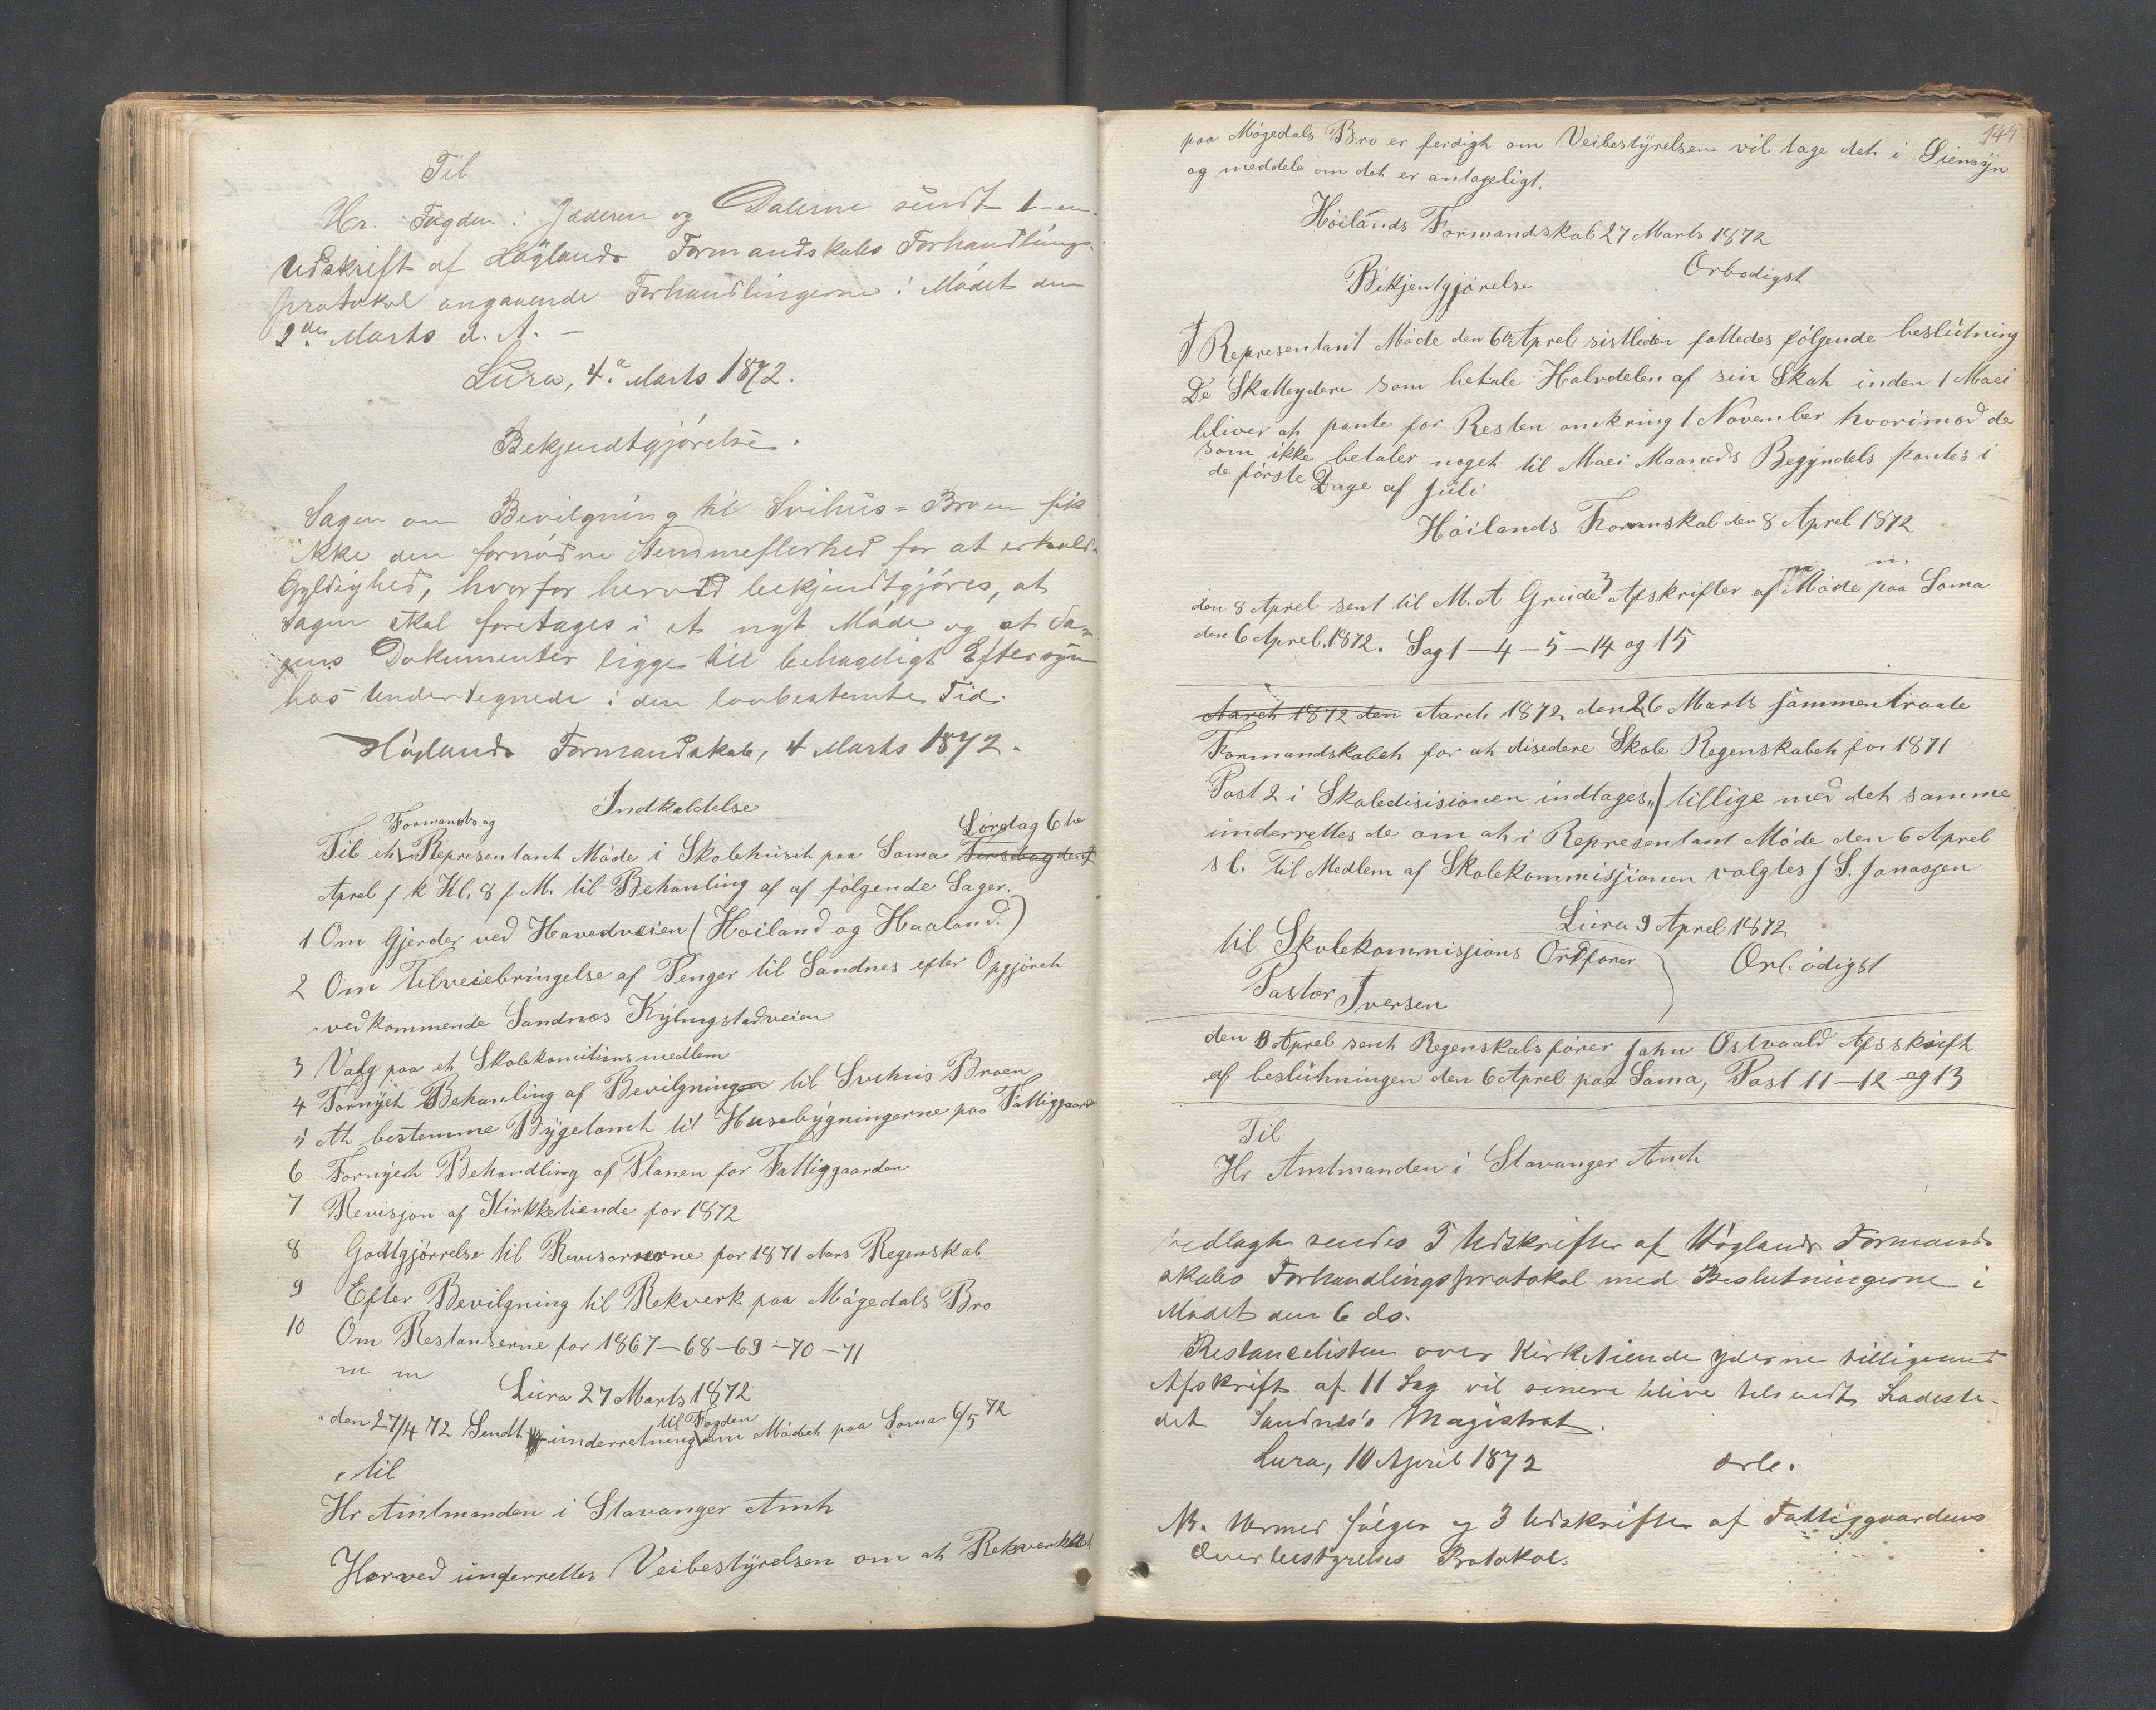 Til
Hr. Fogden i Jæderen og Dalerne sendt 1 en
Udskrift af Høylands Formandskabs Forhandlings-
protokol angaaende Forhandlingerne i Mødet den
2den Marts d. A. –
Lura, 4. Marts 1872.
Bekjendtgjørelse.
Sagen om Bevilgning til Svihus-Broen fik
ikke den fornødne Stemmeflerhed for at erholde
Gyldighed, hvorfor herved bekjendtgjøres, at
Sagen skal foretages i et nyt Møde og at Sa-
gens Dokumenter ligge til behageligt Eftersyn
hos Undertegnede i den lovbestemte Tid.
Høylands Formandskab, 4 Marts 1872.
Indkaldelse
Formands og
Lørdag 6te
Til et Representant Møde i Skolehuset paa Soma Torsdag den
Aprel f k Kl. 8 f M. til Behanling af af følgende Sager.
1 Om Gjerder ved Hovedveien (Høiland og Haaland.)
2 Om Tilveiebringelse af Penger til Sandnes efter Opgjøret
vedkommende Sandnes Kylingstadveien
3 Valg paa et Skolekomitions medlem
4 Fornyet Behanling af Bevilgningen til Svihus Broen
5 At bestemme Bygetomt til Husebygningerne paa Fattiggaarden
6 Fornyeth Behandling af Planen for Fattiggaarden
7 Revisjon af Kirkketiende for 1872
8 Godtgjørrelse til Revisorerne for 1871 Aars Regenskab
9 Efter Bevilgning til Rekverk paa Møgedals Bro
10 Om Restanserne for 1867–68–69–70–71
m m
Lura 27 Marts 1872
til Fogden
den 27/4 72 Sendt underretning om Mødet paa Soma 6/5 72
til
Hr Amtmanden i Stavanger Amt
Herved underrettes Veibestyrelsen om at Rekverket
144
paa Møgedals Bro er ferdigt om Veibestyrelsen vil tage det i Øiensyn
og meddele om det er antageligt.
Høilands Formandskab 27 Marts 1872
Ørbødigst
Bekjentgjørelse
I Representant Møde den 6te Aprel sistleden fattedes følgende beslutning
De Skatteydere som betale Halvdelen af sin Skat inden 1 Maei
bliver at pante for Resten omkring 1 November hvorimod de
som ikke betaler noget til Maei Maaneds Begyndels pantes i
de første Dage af Juli
Høilands Formnskab den 8 Aprel 1872
m m
den 8 Aprel sent til M. A Grude 3 Afskrifter af Møde paa Soma
den 6 Aprel. 1872. Sag 1–4–5–14 og 15
Aaret 1872 den Aaret 1872 den 26 Marts sammentraate
Formandskabet for at disedere Skole Regenskabet for 1871
Post 2 i Skoledisisionen indtages,, / tillige med det samme
underrettes de om at i Representant Møde den 6 Aprel
s l. til Medlem af Skolekommisjionen valgtes J S. Jonassen
Lura 9 Aprel 1872
til Skolekommissjons Ordfører
Ørbødigst
Pastor Iversen
den 9 Aprel sent Regenskabsfører John Ostvaald Afsskrift
af beslutningen den 6 Aprel paa Soma, Post 11–12 og 13
Til
Hr Amtmanden i Stavanger Amt
Vedlagt sendes 5 Udskrifter af Høylands Formand-
skabs Forhandlingsprotokol med Beslutningerne i
Mødet den 6 ds.
Restancelisten over Kirketiende yderne tilligemed
Afskrift af 11 Sag vil senere blive tilsendt Ladeste-
det Sandnes's Magistrat.
Lura, 10 April 1872
ærb.
NB. Hermed følger og 3 Udskrifter af Fattiggaardens
Overbestyrelses Protokol.